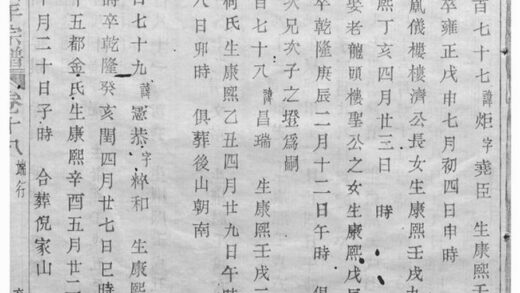 百七十七諱炬字堯臣 生康熙壬
卒雍正戊申七月初四日申時
鳳儀樓樓濟公長女生康熙壬戌九
熙丁亥四月廿三日 時
娶老龍頭樓聖公之女生康熙戊
卒乾隆庚辰二月十二日午時 俱
次兄次子之墱爲嗣
百七十八諱昌瑞 生康熙壬戌
柯氏生康熙乙丑四月廿九日午時
八日卯時 俱葬後山朝南
百七十九諱憲恭字粹和 生康熙
時卒乾隆癸亥閏四月廿七日巳時
十五都金氏生康熙辛酉五月廿二
十月二十日子時 合葬倪家山
宗譜 卷十八 行